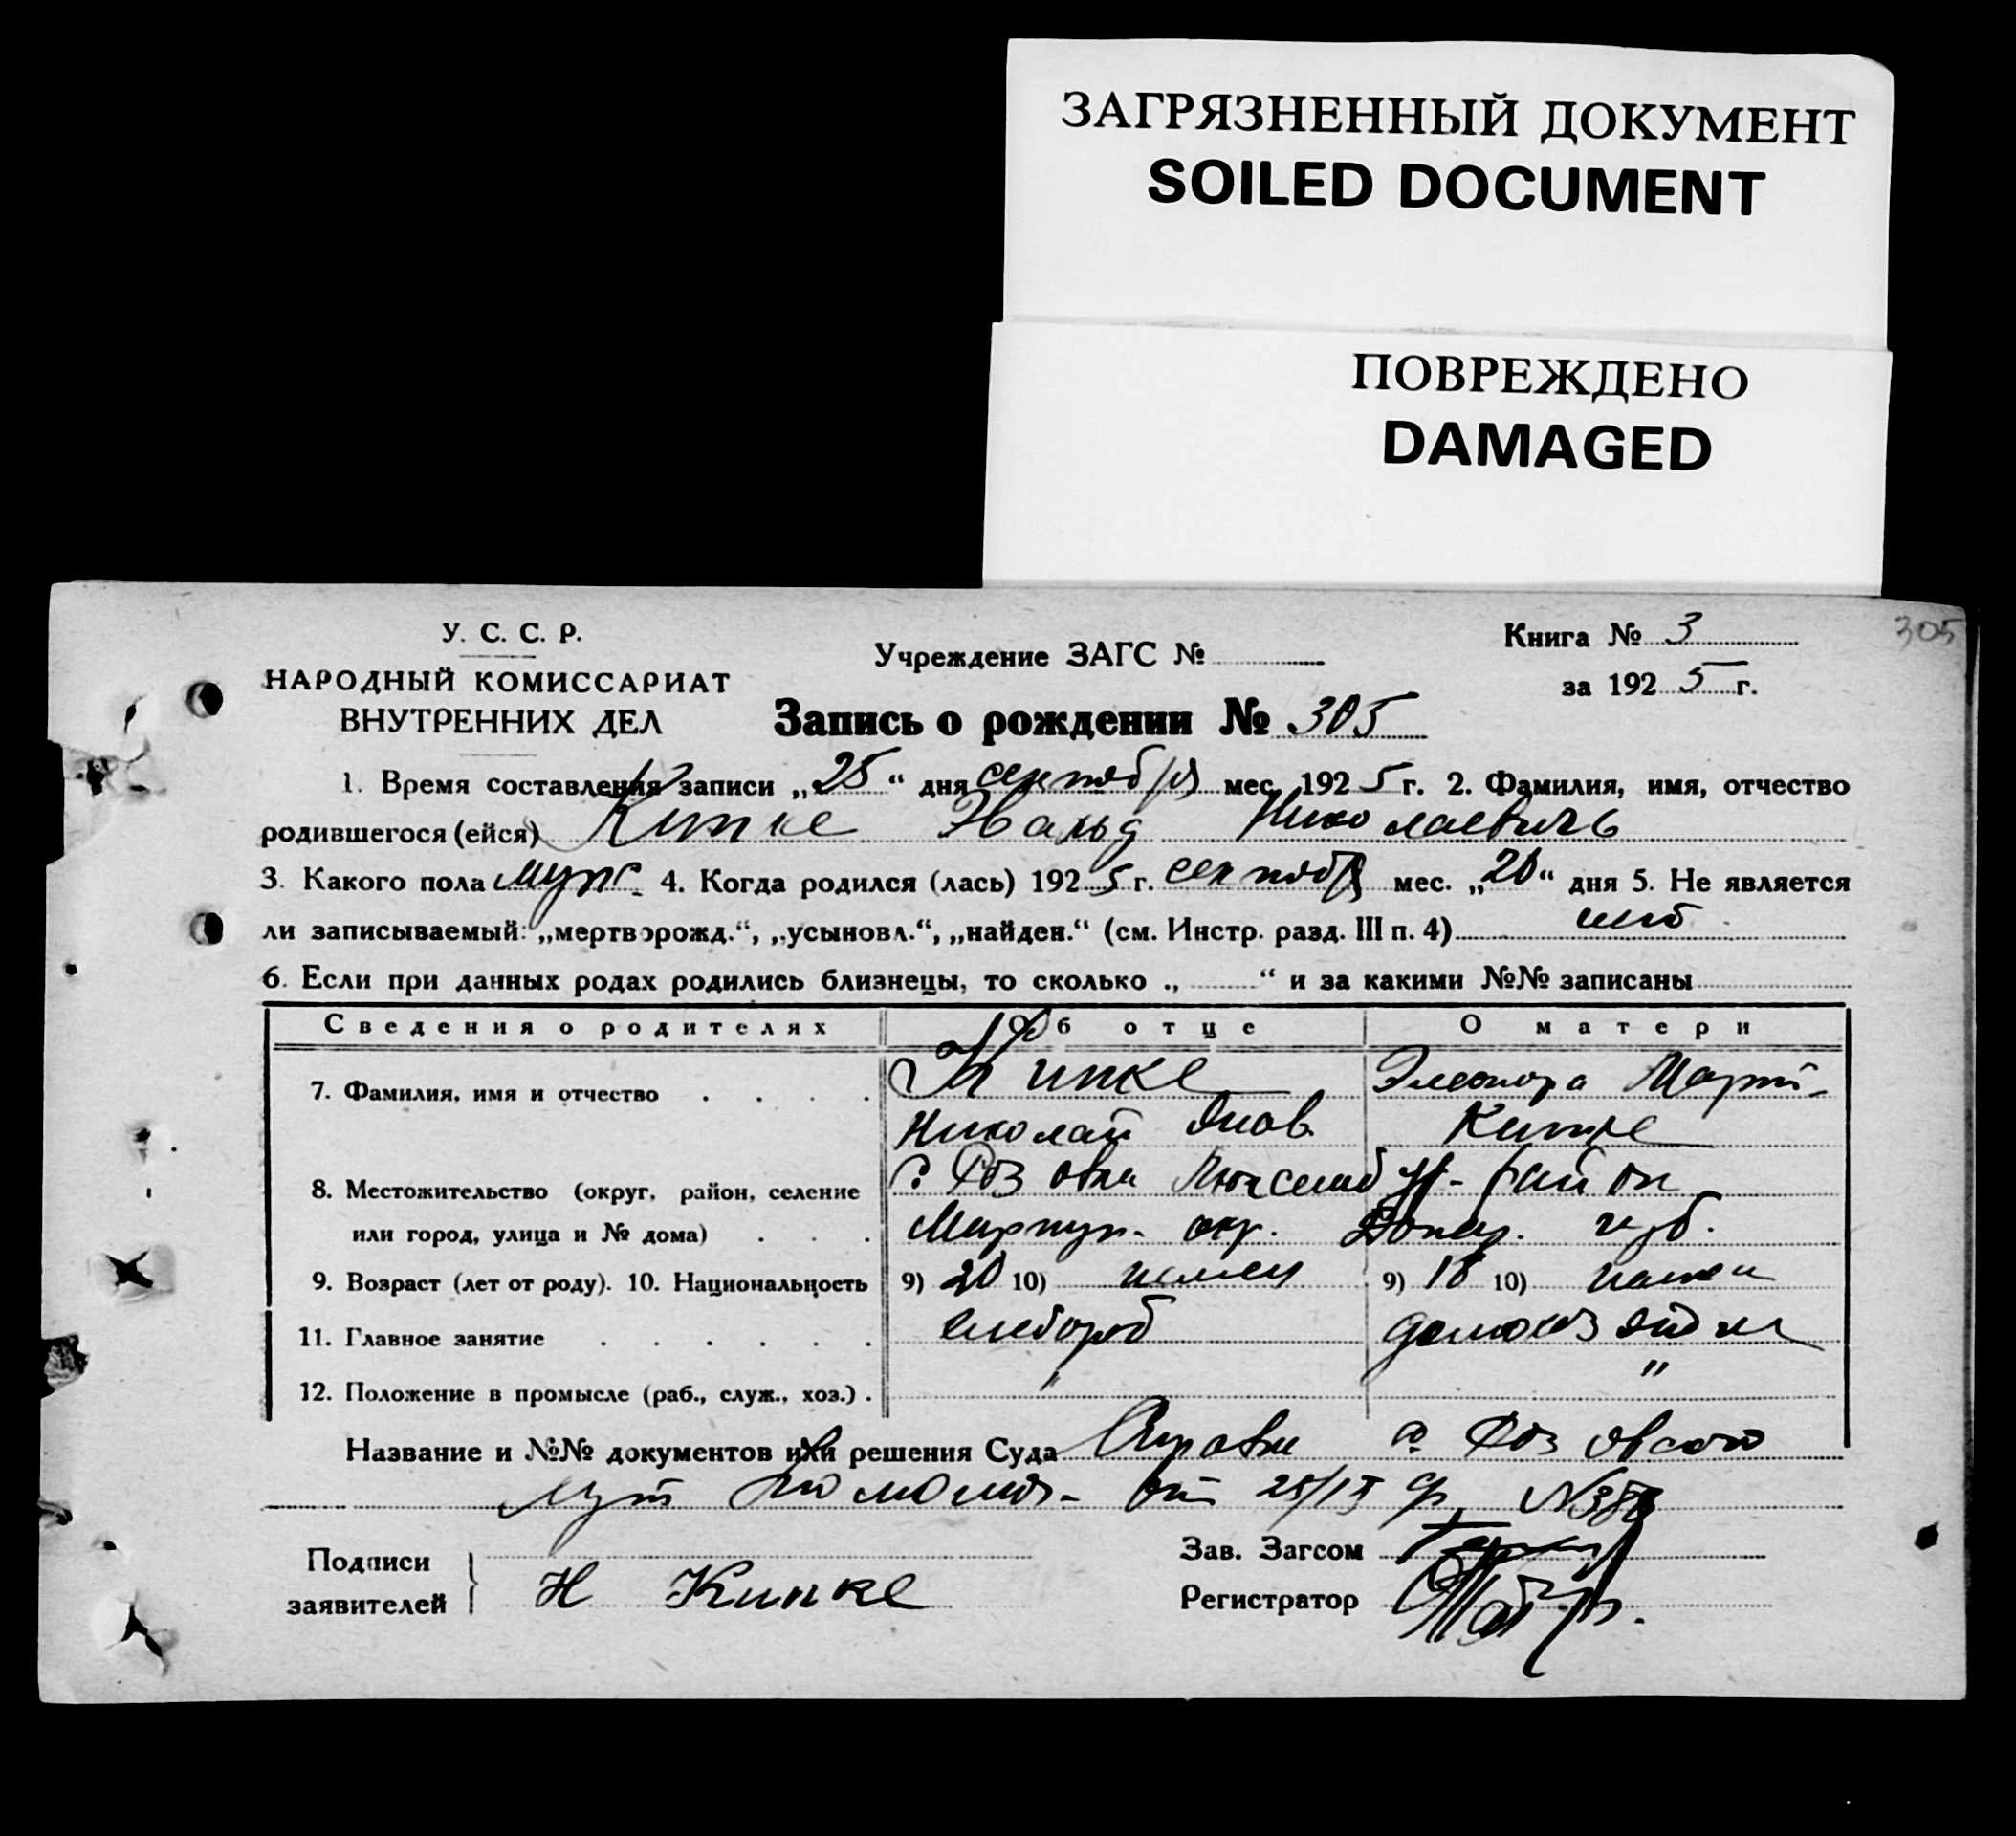 ЗАГРЯЗНЕННЫЙ ДОКУМЕНТ
SOILED DOCUMENT
ПОВРЕЖДЕНО
DAMAGED
305
У. С. С. Р.
НАРОДНЫЙ КОМИССАРИАТ
ВНУТРЕННИХ ДЕЛ
Учреждение ЗАГС №
Книга № 3
за 1925 г.
Запись о рождении № 305
1. Время составления записи „25“ дня сентября мес. 1925 г. 2. Фамилия, имя, отчество
родившегося (ейся) Кипке Эвальд Николаевичь
3. Какого пола муж. 4. Когда родился (лась) 1925 г. сентября мес. „20“ дня 5. Не является
ли записываемый: „мертворожд.“, „усыновл.“, „найден.“ (см. Инстр. разд. III п. 4)
6. Если при данных родах родились близнецы, то сколько „ “ и за какими №№ записаны
Сведения о родителях Об отце О матери
7. Фамилия, имя и отчество Кипке Элеонора Март-
Николай Яков. Кипке
8. Местожительство (округ, район, селение с. Розовка Люксембург- район
или город, улица и № дома) Мариуп. окр. Донец. губ.
9. Возраст (лет от роду). 10. Национальность 9) 20 10) немец 9) 18 10) немка
11. Главное занятие хлебороб домохозяйка
12. Положение в промысле (раб., служ., хоз.) " "
Название и №№ документов или решения Суда Справка с. Розовского
от 25/IX №
Подписи
заявителей Н Кипке
Зав. Загсом
Регистратор